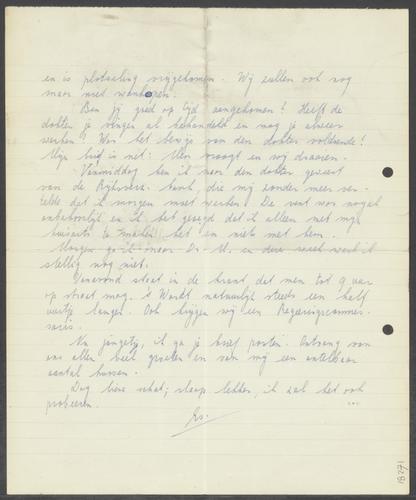 en is plotseling vrijgekomen. Wij zullen ook nog
maar niet wanhopen.
Ben jij goed op tijd aangekomen? Heeft de
dokter je vinger al behandeld en mag je alweer
werken? Was het bewijs van den dokter voldoende?
Mijn lied is net: Men vraagt en wij draaien.
Vanmiddag ben ik naar den dokter geweest
van de Rijksverz. bank, die mij zonder meer ver-
telde dat ik morgen moet werken. De vent was nogal
onbehoorlijk en ik heb gezegd dat ik alleen met mijn
huisarts te maken heb en niet met hem.
Morgen ga ik naar Dr. M. en deze week werk ik
stellig nog niet.
Vanavond staat in de krant dat men tot 9 uur
op straat mag. 't Wordt natuurlijk steeds een half
uurtje langer. Ook krijgen wij een Regeeringscommis-
saris.
Nu jongetje, ik ga je brief posten. Ontvang van
ons allen heel groeten en van mij een ontelbaar
aantal kussen.
Dag lieve schat; slaap lekker, ik zal het ook
probeeren. ...
18271